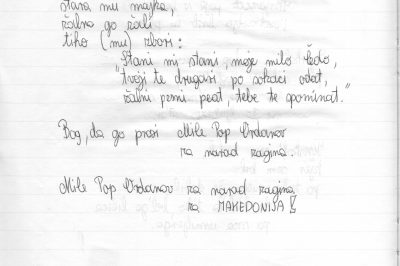 stara mu majka,
žalna go žali
tiho (mu) zbori:
"Stani mi stani, moje milo čedo,
tvoji te drugari po sokaci odat,
žalni pesni peat, tebe te spominat."
Bog, da go prosi Mile Pop Ordanov
za narod zagina.
Mile Pop Ordanov za narod zagina
za MAKEDONIJA!